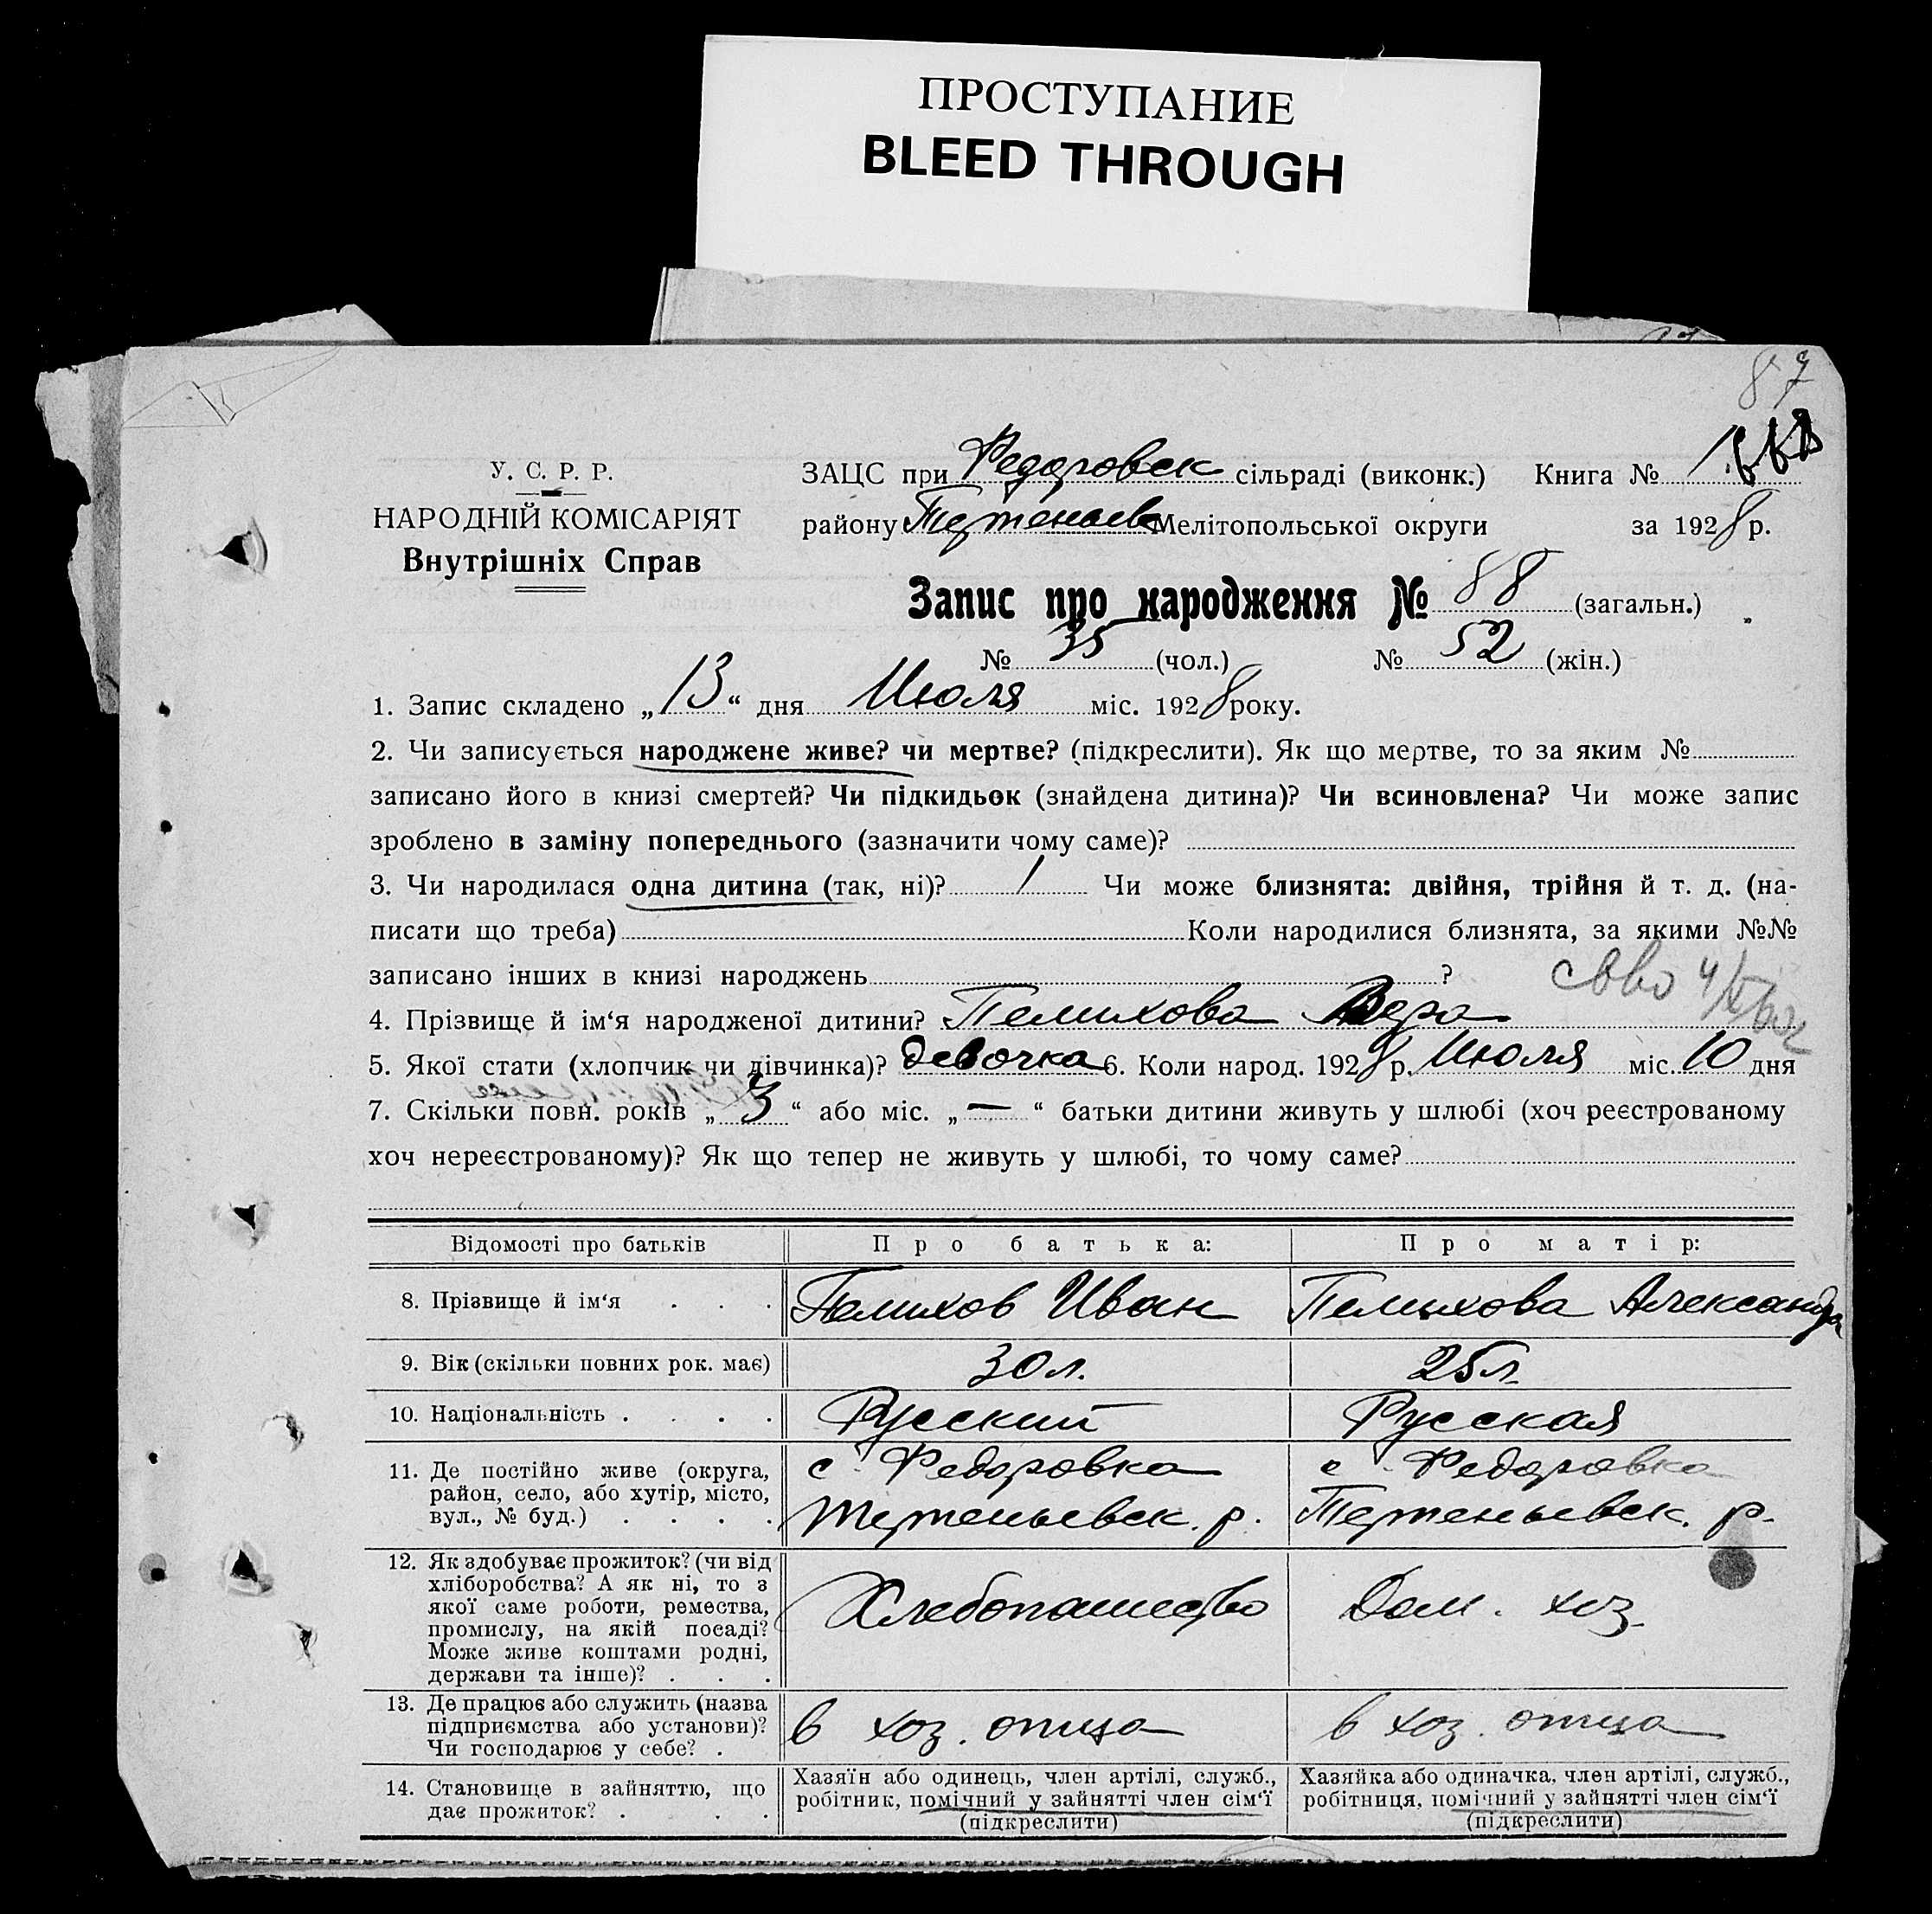 ПРОСТУПАНИЕ
BLEED THROUGH
87
У. С. Р. Р.
НАРОДНІЙ КОМІСАРІЯТ
Внутрішніх Справ
ЗАЦС при Федоровск сільраді (виконк.) Книга №
району Мелітопольської округи за 1928 р.
Запис про народження № 88 (загальн.)
№ 35 (чол.) № 52 (жін.)
1. Запис складено „13“ дня Июля міс. 1928 року.
2. Чи записується народжене живе? чи мертве? (підкреслити). Як що мертве, то за яким №
записано його в книзі смертей? Чи підкидьок (знайдена дитина)? Чи всиновлена? Чи може запис
зроблено в заміну попереднього (зазначити чому саме)?
3. Чи народилася одна дитина (так, ні)? 1 Чи може близнята: двійня, трійня й т. д. (на-
писати що треба) Коли народилися близнята, за якими №№
записано інших в книзі народжень ?
4. Прізвище й ім‘я народженої дитини? Пелихова Вера
5. Якої стати (хлопчик чи дівчинка)? девочка 6. Коли народ. 1928 р. Июля міс. 10 дня
7. Скільки повн. років „3“ або міс. „—“ батьки дитини живуть у шлюбі (хоч реєстрованому
хоч нереєстрованому)? Як що тепер не живуть у шлюбі, то чому саме?
Відомості про батьків Про батька: Про матір:
8. Прізвище й ім‘я . . . Пелихов Иван Пелихова Александра
9. Вік (скільки повних рок. має) 30 л. 25 л.
10. Національність . . . . Русский Русская
11. Де постійно живе (округа, район, село, або хутір, місто, вул., № буд.) . . . . с. Федоровка с. Федоровка
Терпеньевск. р. Терпеньевск. р.
12. Як здобуває прожиток? (чи від хліборобства? А як ні, то з якої саме роботи, ремества, промислу, на якій посаді? Може живе коштами родні, держави та інше)? . . . Хлебопашество Дом. хоз.
13. Де працює або служить (назва підприємства або установи)? Чи господарює у себе? . в хоз. отца в хоз. отца
14. Становище в зайняттю, що дає прожиток? . . .
Хазяїн або одинець, член артілі, служб., робітник, помічний у зайнятті член сім‘ї (підкреслити)
Хазяйка або одиначка, член артілі, служб., робітниця, помічний у зайнятті член сім‘ї (підкреслити)